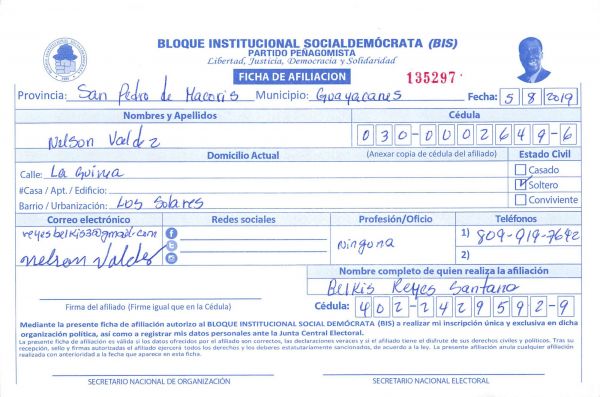 BLOQUE INSTITUCIONAL SOCIALDEMÓCRATA (BIS)
PARTIDO PEÑAGOMISTA
Libertad, Justicia, Democracia y Solidaridad
FICHA DE AFILIACION
135297
Provincia: San Pedro de Macoris Municipio: Guayacanes Fecha: 5 8 2019
Nombres y Apellidos Cédula
Nelson Valdez 030-0002649-6
Domicilio Actual (Anexar copia de cédula del afiliado) Estado Civil
Calle: La Guinea Casado
#Casa / Apt. / Edificio: Soltero
Barrio / Urbanización: Los Solares Conviviente
Correo electrónico Redes sociales Profesión/Oficio Teléfonos
reyesbelkis3@gmail.com Ninguna 1) 809-919-7692
Nelson Valdez 2)
Nombre completo de quien realiza la afiliación
Belkis Reyes Santana
Firma del afiliado (Firme igual que en la Cédula) Cédula: 402-2429592-9
Mediante la presente ficha de afiliación autorizo al BLOQUE INSTITUCIONAL SOCIAL DEMÓCRATA (BIS) a realizar mi inscripción única y exclusiva en dicha
organización política, así como a registrar mis datos personales ante la Junta Central Electoral.
La presente ficha de afiliación es válida si los datos ofrecidos por el afiliado son correctos, las declaraciones veraces y si el afiliado tiene el disfrute de sus derechos civiles y políticos. Tras su
recepción, sello y firmas autorizadas el afiliado ejercerá todos los derechos y los deberes estatutariamente sancionados, de acuerdo a la ley. La presente afiliación anula cualquier afiliación
realizada con anterioridad a la fecha que aparece en esta ficha.
SECRETARIO NACIONAL DE ORGANIZACIÓN SECRETARIO NACIONAL ELECTORAL